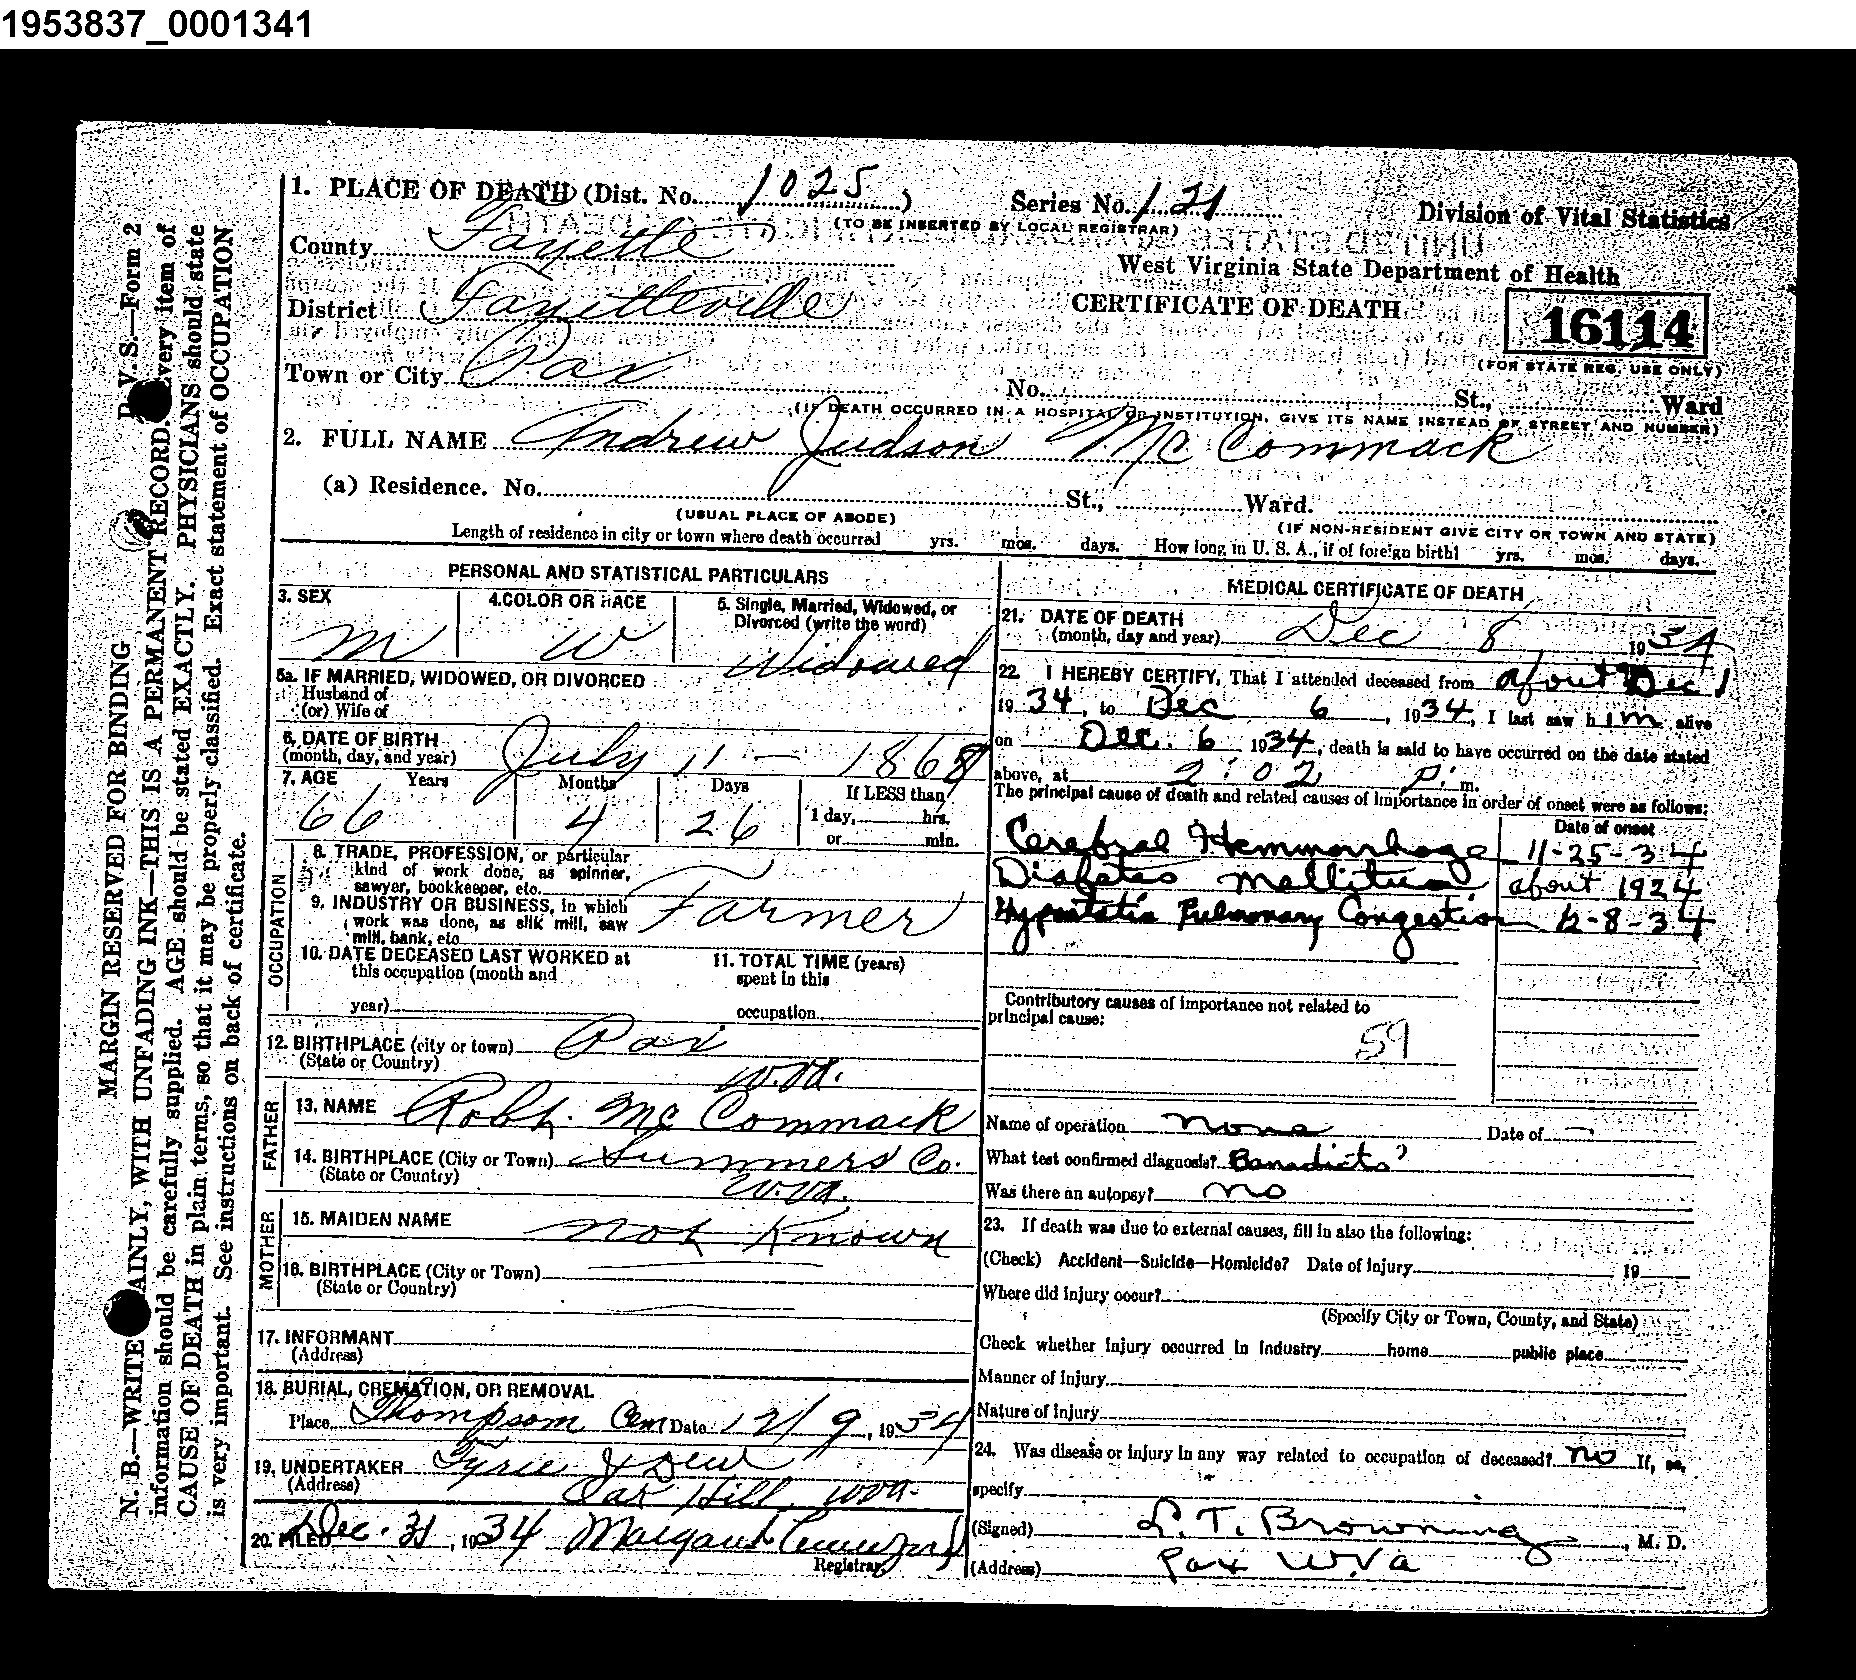 1953837_0001341
1. PLACE OF DEATH (Dist. No. 1025) Series No. 121
(TO BE INSERTED BY LOCAL REGISTRAR)
Division of Vital Statistics
County Fayette
West Virginia State Department of Health
District Fayetteville
CERTIFICATE OF DEATH
16114
(FOR STATE REG. USE ONLY)
Town or City Pax No. St., Ward
(IF DEATH OCCURRED IN A HOSPITAL OR INSTITUTION, GIVE ITS NAME INSTEAD OF STREET AND NUMBER)
2. FULL NAME Andrew Judson Mc Commack
(a) Residence. No. St., Ward.
(USUAL PLACE OF ABODE) (IF NON-RESIDENT GIVE CITY OR TOWN AND STATE)
Length of residence in city or town where death occurred yrs. mos. days. How long in U. S. A., if of foreign birth? yrs. mos. days.
PERSONAL AND STATISTICAL PARTICULARS
3. SEX 4. COLOR OR RACE 5. Single, Married, Widowed, or
Divorced (write the word)
M W Widowed
5a. IF MARRIED, WIDOWED, OR DIVORCED
Husband of
(or) Wife of
6. DATE OF BIRTH
(month, day, and year) July 11 - 1868
7. AGE Years Months Days If LESS than
66 4 26 1 day, hrs.
or min.
OCCUPATION
8. TRADE, PROFESSION, or particular
kind of work done, as spinner,
sawyer, bookkeeper, etc.
9. INDUSTRY OR BUSINESS, in which
work was done, as silk mill, saw
mill, bank, etc
Farmer
10. DATE DECEASED LAST WORKED at
this occupation (month and
year)
11. TOTAL TIME (years)
spent in this
occupation
12. BIRTHPLACE (city or town) Pax
(State or Country) W.Va.
FATHER
13. NAME Robt. Mc Commack
14. BIRTHPLACE (City or Town) Summers Co.
(State or Country) W.Va.
MOTHER
15. MAIDEN NAME Not Known
16. BIRTHPLACE (City or Town)
(State or Country)
17. INFORMANT
(Address)
18. BURIAL, CREMATION, OR REMOVAL
Place Thompson Cem Date 12/9, 1934
19. UNDERTAKER Tyree & Deul
(Address) Oak Hill, W.Va.
20. FILED Dec. 31, 1934 Margaret
Registrar.
MEDICAL CERTIFICATE OF DEATH
21. DATE OF DEATH
(month, day and year) Dec 8 1934
22. I HEREBY CERTIFY, That I attended deceased from about Dec 1
1934, to Dec 6, 1934, I last saw him alive
on Dec. 6 1934, death is said to have occurred on the date stated
above, at 2:02 P. m.
The principal cause of death and related causes of importance in order of onset were as follows:
Date of onset
Cerebral Hemmorrhage 11-25-34
Diabetes Mellitus about 1924
Hypostatic Pulmonary Congestion 12-8-34
Contributory causes of importance not related to
principal cause:
59
Name of operation None Date of —
What test confirmed diagnosis? Benadicts'
Was there an autopsy? No
23. If death was due to external causes, fill in also the following:
(Check) Accident—Suicide—Homicide? Date of Injury 19
Where did injury occur?
(Specify City or Town, County, and State)
Check whether injury occurred in industry home public place
Manner of injury
Nature of injury
24. Was disease or injury in any way related to occupation of deceased? No If, so,
specify
(Signed) L. T. Browning, M. D.
(Address) Pax W.Va
V. S.—Form 2
MARGIN RESERVED FOR BINDING
N. B.—WRITE AINLY, WITH UNFADING INK—THIS IS A PERMANENT RECORD. Every item of
information should be carefully supplied. AGE should be stated EXACTLY. PHYSICIANS should state
CAUSE OF DEATH in plain terms, so that it may be properly classified. Exact statement of OCCUPATION
is very important. See instructions on back of certificate.